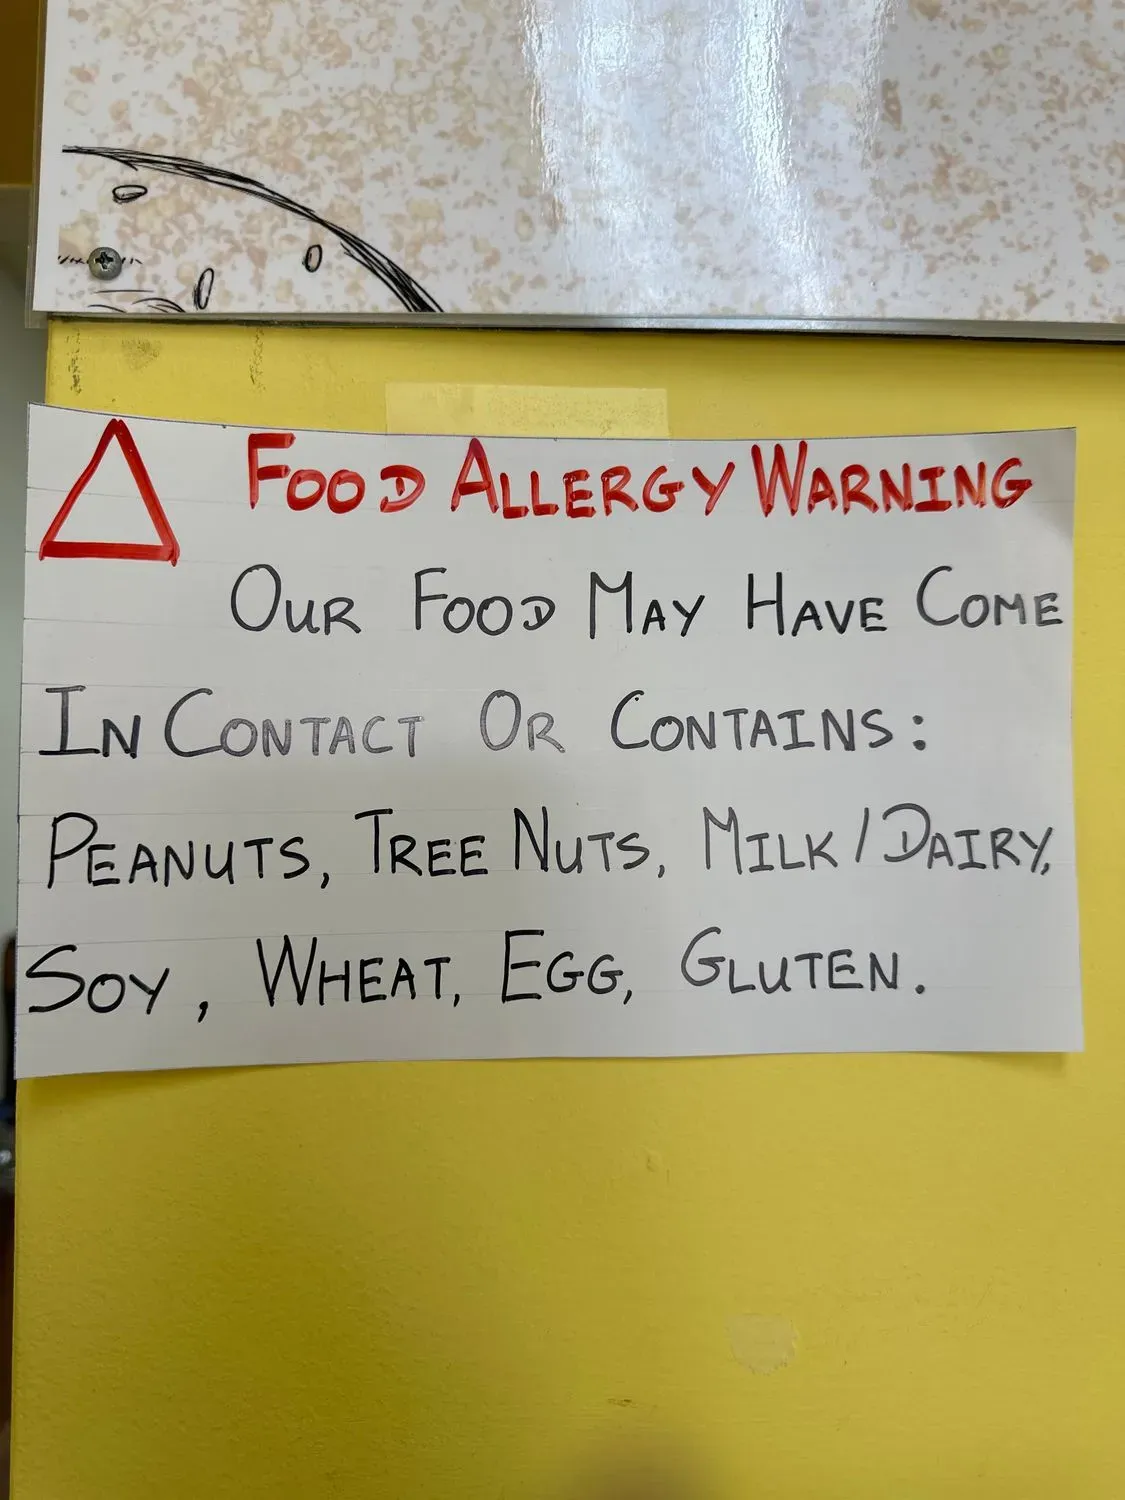 FOOD ALLERGY WARNING
OUR FOOD MAY HAVE COME
IN CONTACT OR CONTAINS:
PEANUTS, TREE NUTS, MILK/DAIRY,
SOY, WHEAT, EGG, GLUTEN.